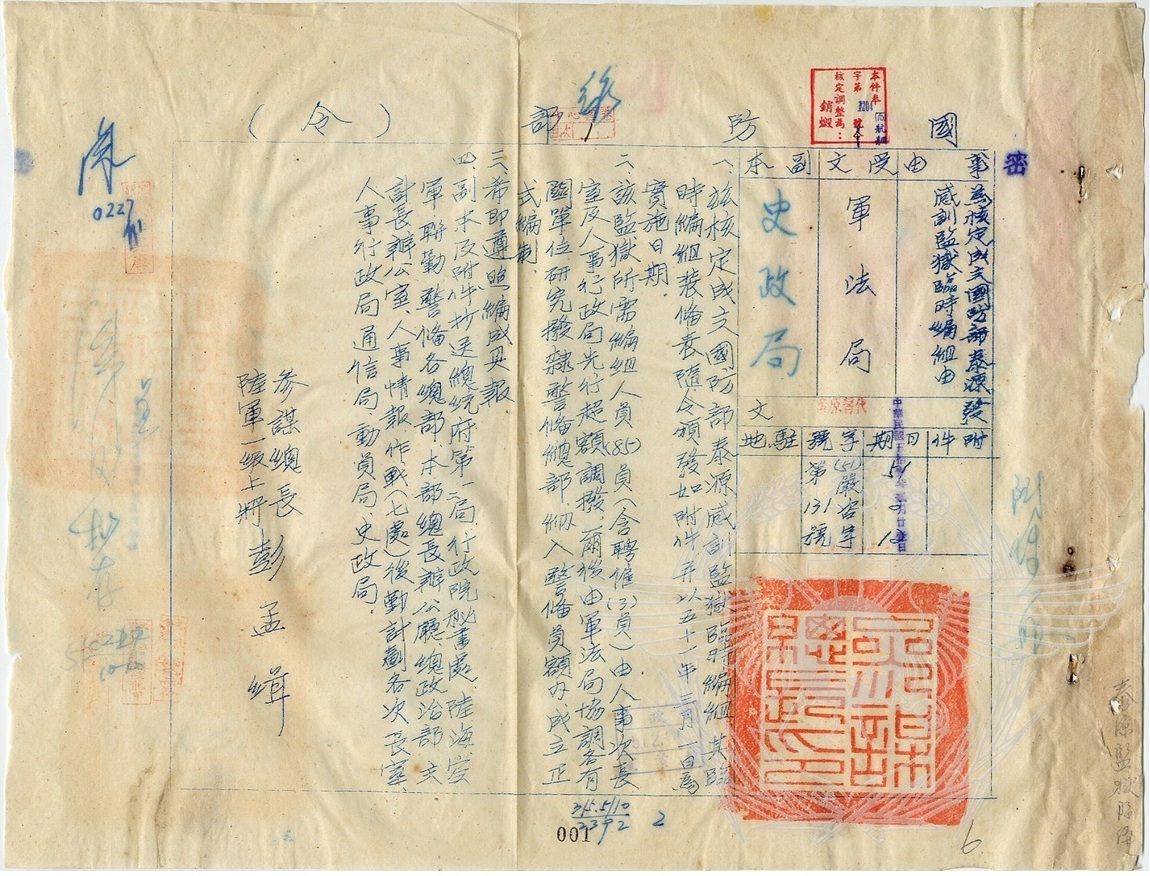 國防部(令)
密
本件奉
字第3204號令
核定調整為：
銷燬
事由
為核定成立國防部泰源
感訓監獄臨時編組由
受文
軍法局
副本
史政局
附件
日期
51 2 12
字號
(51)嚴咨字
第131號
駐地
一、茲核定成立國防部泰源感訓監獄臨時編組其臨
時編組裝備表隨令頒發如附件并以五十一年三月一日為
實施日期.
二、該監獄所需編組人員(85)員(含聘僱(3)員)由人事次長
室及人事行政局先行超額調撥爾後由軍法局協調各有
關單位研究撥隸警備總部納入警備員額內成立正
式編制.
三、希即遵照編成具報.
四、副本及附件抄送總統府第二局.行政院秘書處.陸海空
軍聯勤警備各總部本部總長辦公廳.總政治部.主
計長辦公室.人事情報作戰(七處)後勤計劃各次長室、
人事行政局通信局.動員局.史政局.
參謀總長
陸軍一級上將 彭孟緝
0227
315.5/10
2392 2
001
6